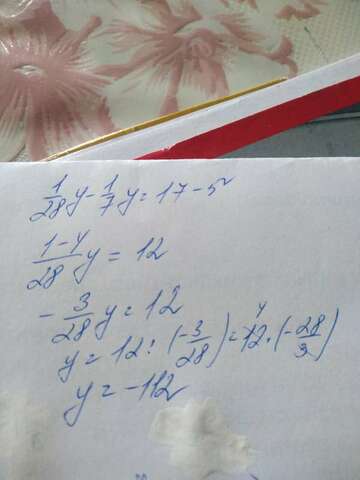 1/28 y - 1/7 y = 17 - 5
1-4/28 y = 12
- 3/28 y = 12
y = 12 : (-3/28) = 12 · (-28/3)
y = -112